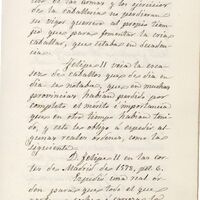 cio de las armas y los ejercicios
de la caballeria no perdieran
su vigor guerrero al propio tiem-
po que para fomentar la cria
caballar, que estaba en decaden-
cia.
Felipe II veia la esca-
sez de caballos que de dia en
dia se notaba, que en muchas
provincias habian perdido por
completo el mérito é importancia
que en otro tiempo habian teni-
do, y esto les obligó a expedir al-
gunas reales órdenes, como la
siguiente.
D. Felipe II en las cor-
tes de Madrid de 1578, pet. 6.
Expedir una real or-
den para que todo el que